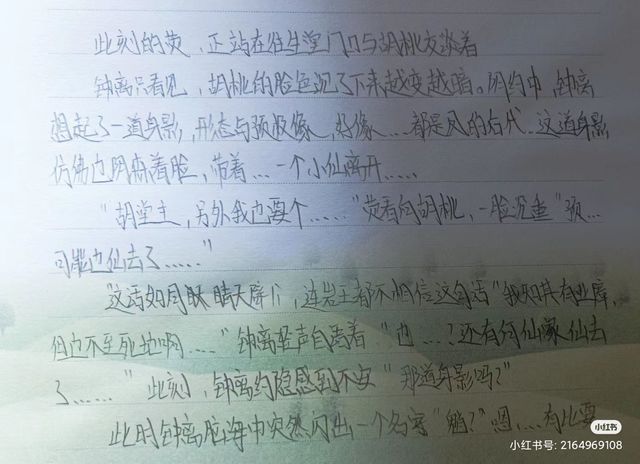 此刻的荧，正站在往生堂门口与胡桃交谈着
钟离只看见，胡桃的脸色沉了下来越变越暗。阴约中，钟离
想起了一道身影，形态与颈极像，好像……都是风的后代。这道身影
仿佛也阴森着脸，带着…一个小仙离开……
“胡堂主，另外我也要个……”荧看向胡桃，一脸沉重“颈…
可能也仙去了……”
这话如同晴天降，连岩王都不相信这句话“我知其有业障，
但也不至死地啊……”钟离坚声自着“也…？还有何仙仙去
了……”此刻，钟离约隐感到不安“那道身影吗？”
此时钟离脑海中突然闪出一个名字“鹏？”嗯…有此要
小红书
小红书号: 2164969108